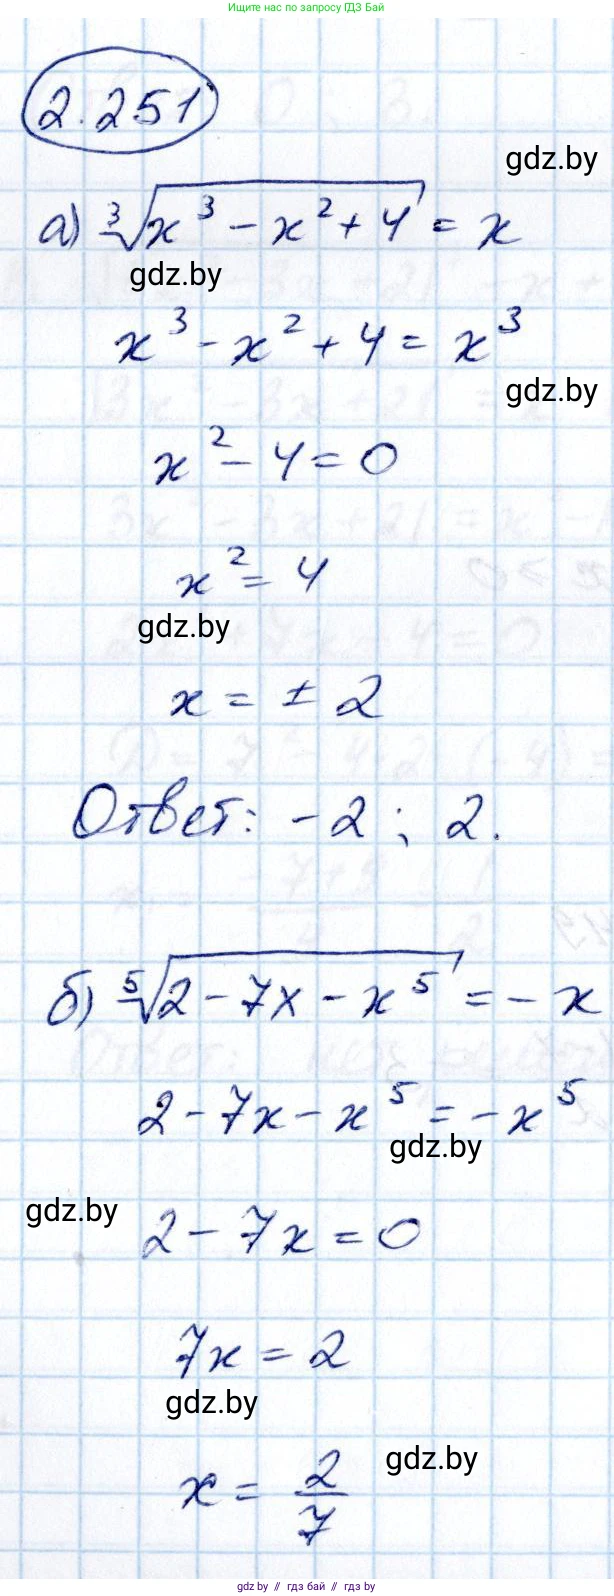 Ищите нас по запросу ГДЗ Бай
2.251
gdz.by
а) ∛(x³ - x² + 4) = x
gdz.by
x³ - x² + 4 = x³
gdz.by
x² - 4 = 0
x² = 4
gdz.by
x = ± 2
Ответ: -2; 2.
б) ⁵√(2 - 7x - x⁵) = -x
2 - 7x - x⁵ = -x⁵
gdz.by
gdz.by
2 - 7x = 0
7x = 2
gdz.by
gdz.by
x = 2/7
gdz.by // гдз бай // гдз.by